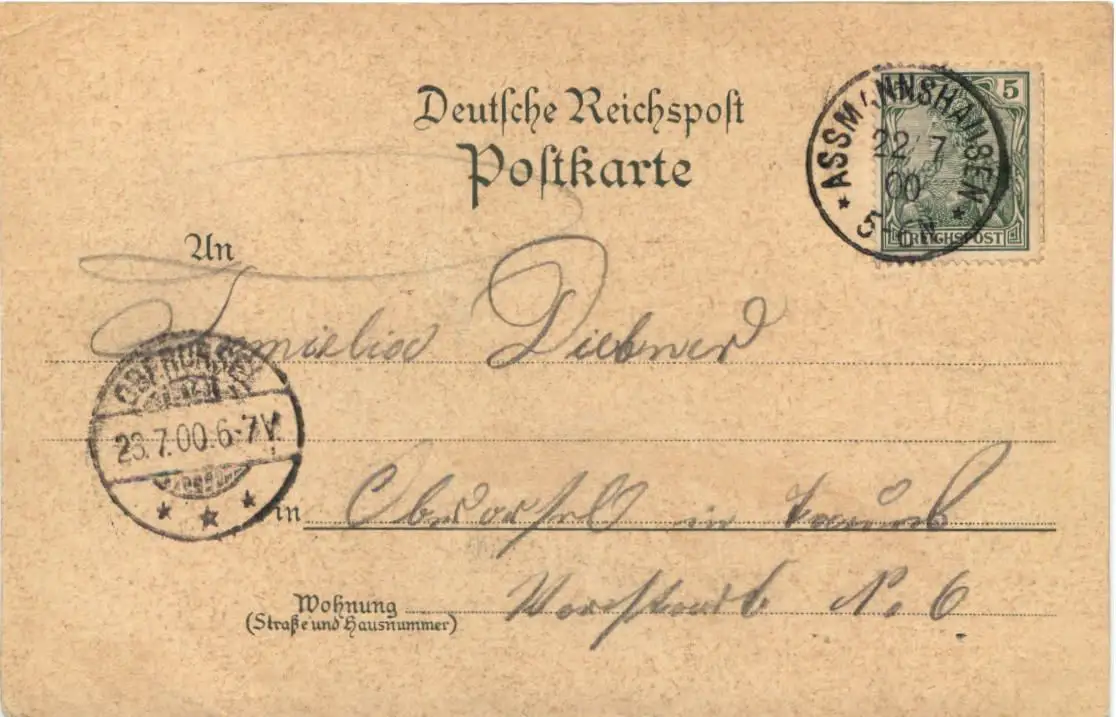 Deutsche Reichspost
Postkarte
5
ASSMANNSHAUSEN
22 7
00
5-6N
REICHSPOST
An
Familie Diebner
OBERURSEL
23.7.00.6-7V.
in Oberorsel in Taunus
Wohnung
(Straße und Hausnummer)
Vorstadt No 6